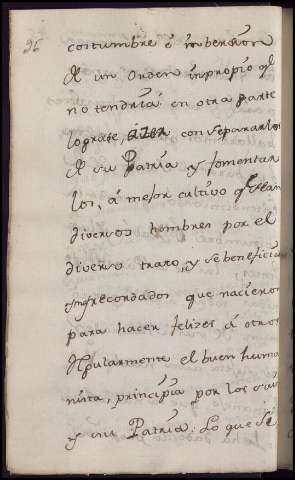 96
costumbre ô imbencion
de un Orden impropio qᵉ
no tendría en otra parte
lograse, con separarlos
de su Patria y fomentar
los, â mejor cultivo qᵉ sean
diversos hombres por el
diverso trato, y se benefician
recordados que nacieron
para hacer felizes â otros
Regularmente el buen huma
nista, principia por los suios
y su Patria: Lo que se